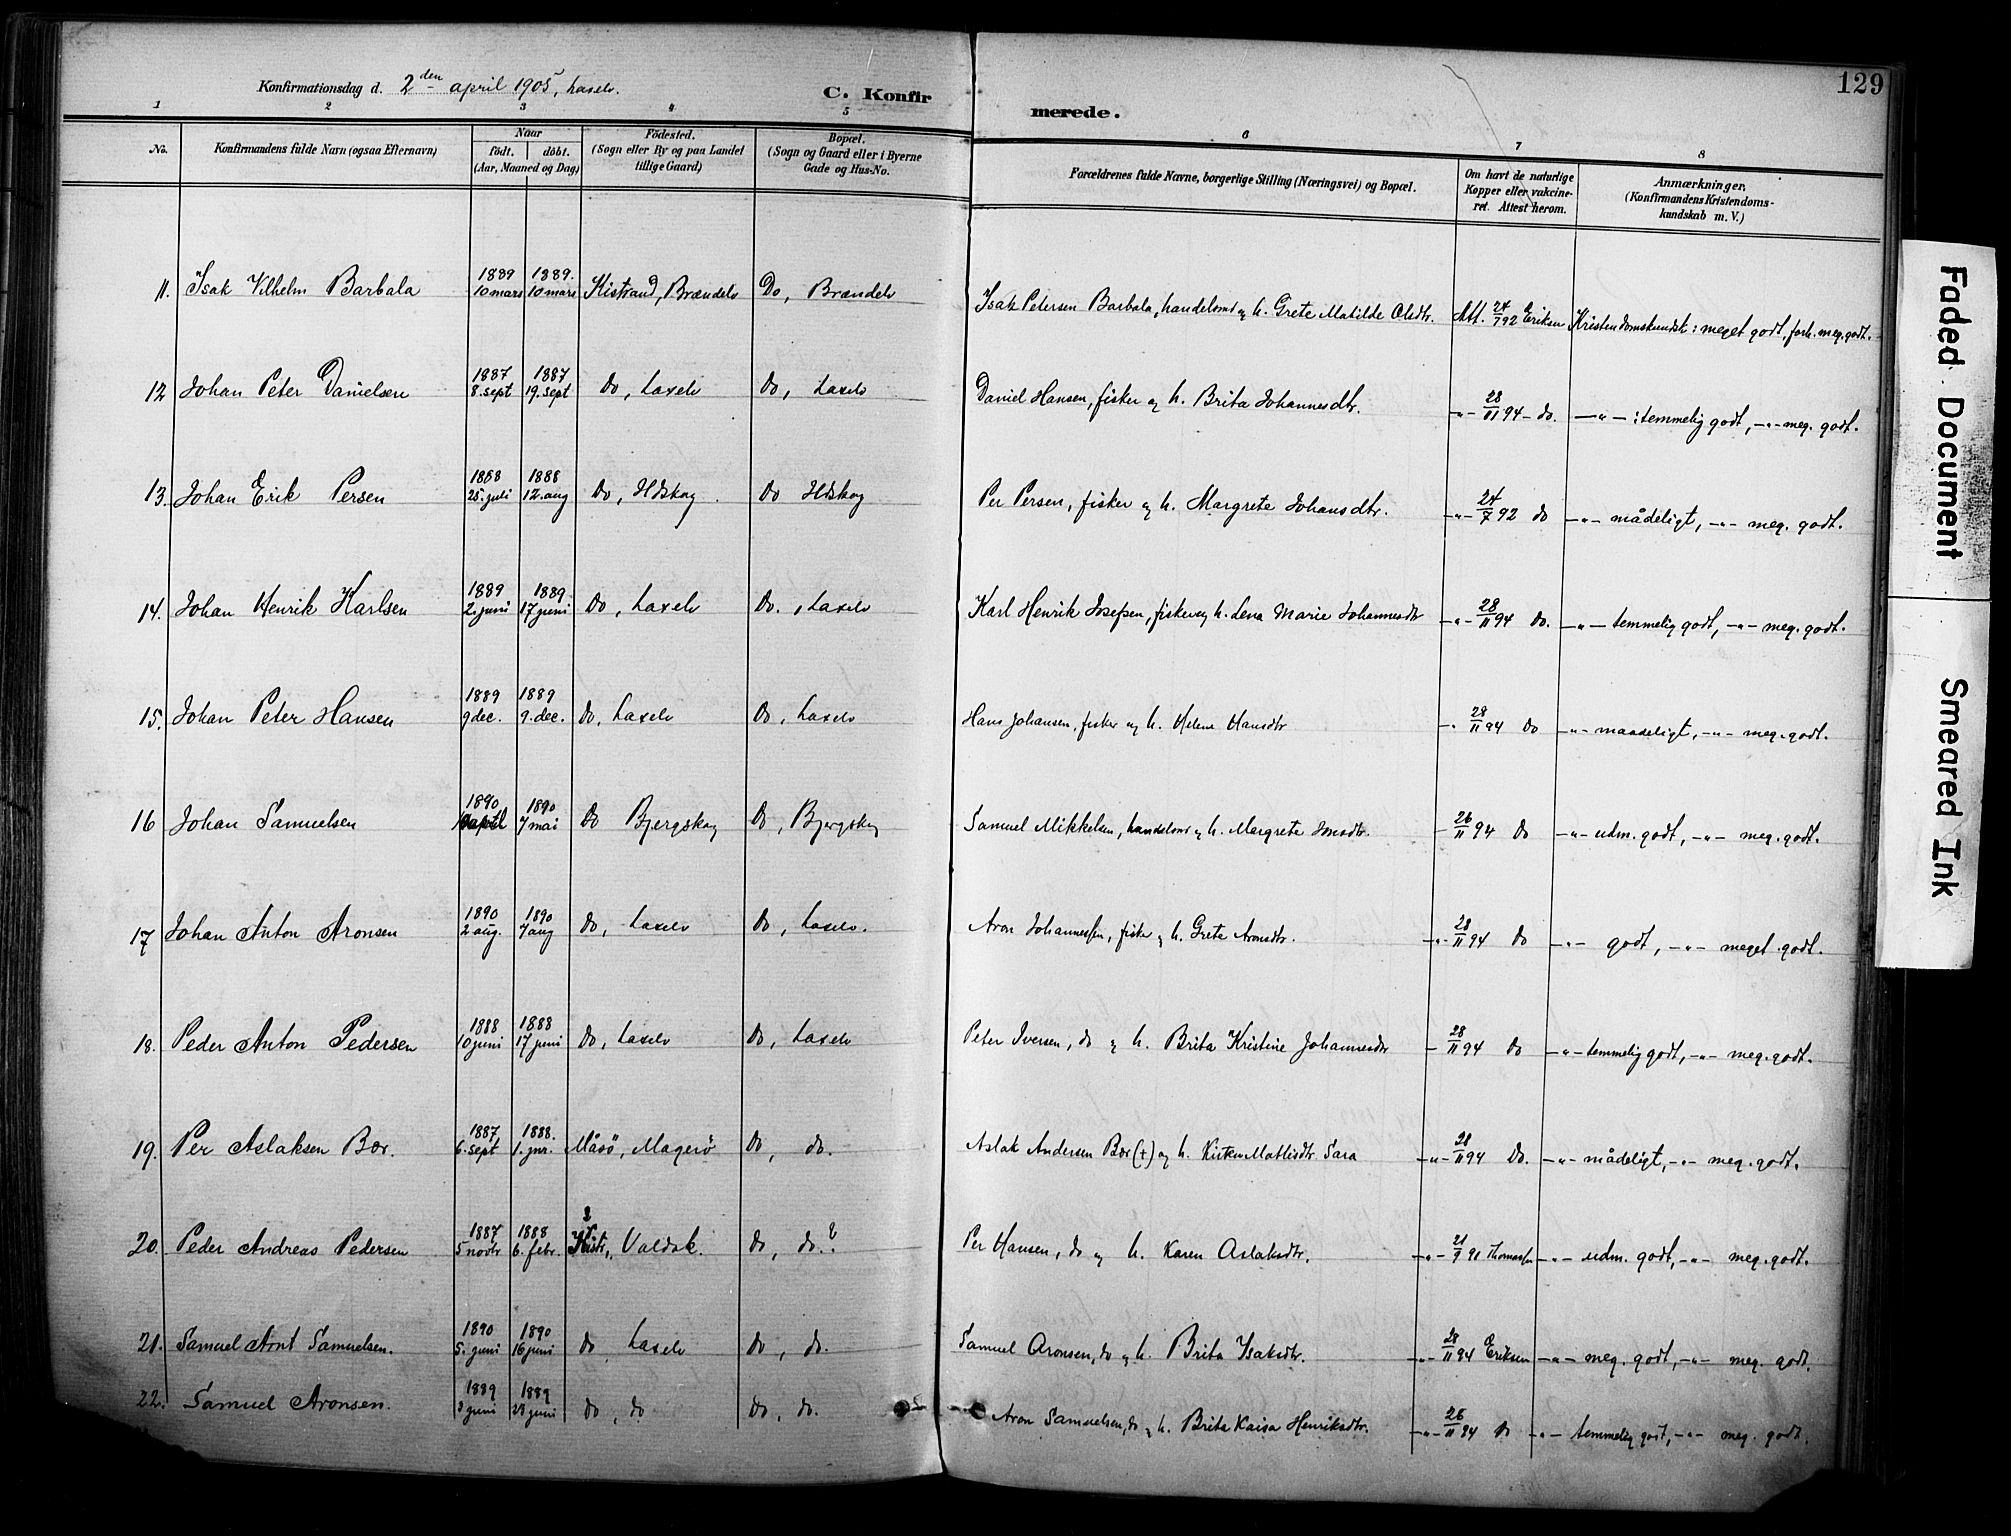 129
Konfirmationsdag d. 2den april 1905, Laxelv.
C. Konfirmerede.
1 2 3 4 5 6 7 8
No. Konfirmandens fulde Navn (ogsaa Efternavn) Naar født. døbt. (Aar, Maaned og Dag) Fødested. (Sogn eller By og paa Landet tillige Gaard) Bopæl. (Sogn og Gaard eller i Byerne Gade og Hus-No. Forældrenes fulde Navne, borgerlige Stilling (Næringsvei) og Bopæl. Om havt de naturlige Kopper eller vakcineret. Attest herom. Anmærkninger. (Konfirmandens Kristendomskundskab m. V.)
11. Isak Vilhelm Barbala 1889 10 mars 1889. 10 mars Kistrand, Brændelv Do, Brændelv Isak Petersen Barbala, handelsmd og h. Grete Matilde Oledtr. Att. 24/7 92 Eriksen Kristendomskundsk: meget godt, forh. meg. godt.
12 Johan Peter Danielsen 1887 8. sept 1887 19. sept Do, Laxelv Do, Laxelv Daniel Hansen, fisker og h. Brita Johannesdtr. -"- 28/11 94 - do. -"- : temmelig godt, -"- meg. godt.
13. Johan Erik Persen 1888 25. juli 1888 12. aug Do, Hdskog Do Hdskog Per Persen, fisker og h. Margrete Johansdtr. -"- 24/7 92 do -"- mådeligt, -"- meg. godt.
14. Johan Henrik Karlsen 1889 2. juni 1889 17 juni Do, Laxelv Do., Laxelv Karl Henrik Josefsen, fisker og h. Lena Marie Johannesdtr -"- 28/11 94 Do. -"- temmelig godt, -"- meg. godt.
15. Johan Peter Hansen 1889 9 dec. 1889 9. dec. Do, Laxelv Do, Laxelv Hans Johansen, fisker og h. Helene Hansdtr -" 28/11 94 Do -"- maadeligt, -"- meg. godt.
16 Johan Samuelsen 1890 april 1890 7 mai Do Bjergskog Do, Bjergskog Samuel Mikkelsen, handelsmd og h. Margrete Jonsdtr. - 26/11 94 Do -"- udm. godt, -"- meg. godt.
17 Johan Anton Aronsen 1890 2 aug. 1890 7 aug Do, Laxelv Do, Laxelv. Aron Johannessen, fisker og h. Grete Aronsdtr. -"- 28/11 94 Do -"- godt, -"- meget godt.
18. Peder Anton Pedersen 1888 10 juni 1888 17 juni Do, Laxelv Do, Laxelv Peter Iversen, do og h. Brita Kristine Johannesdtr - 28/11 94 Do -"- temmelig godt, -"- meg. godt.
19. Per Aslaksen Bær. 1887 6. sept 1888. 1. jnr. Måsö, Magerö Do, do. Aslak Andersen Bær (+) og h. Kirsten Mathisdtr Sara -"- 28/11 94 Do. -"- mådeligt, -"- meg. godt.
20. Peder Andreas Pedersen 1887 5 novbr 1888 6. febr. Kistr., Valdak. Do, do.? Per Hansen, do og h. Karen Aslaksdtr. -"- 21/9 91 Thomassen -"- udm. godt, -"- meg. godt.
21. Samuel Arnt Samuelsen. 1890 5. juni 1890 16 juni Do Laxelv Do, do. Samuel Aronsen, do og h. Brita Isaksdtr. -"- 28/11 94 Eriksen -"- meg. godt, -"- meg. godt.
22. Samuel Aronsen. 1889 3 juni 1889 23 juni Do, do Do, do. Aron Samuelsen, do og h. Brita Kaisa Henriksdtr. -"- 26/11 94 Do -"- temmelig godt, -"- meg. godt.
Faded Document
Smeared Ink